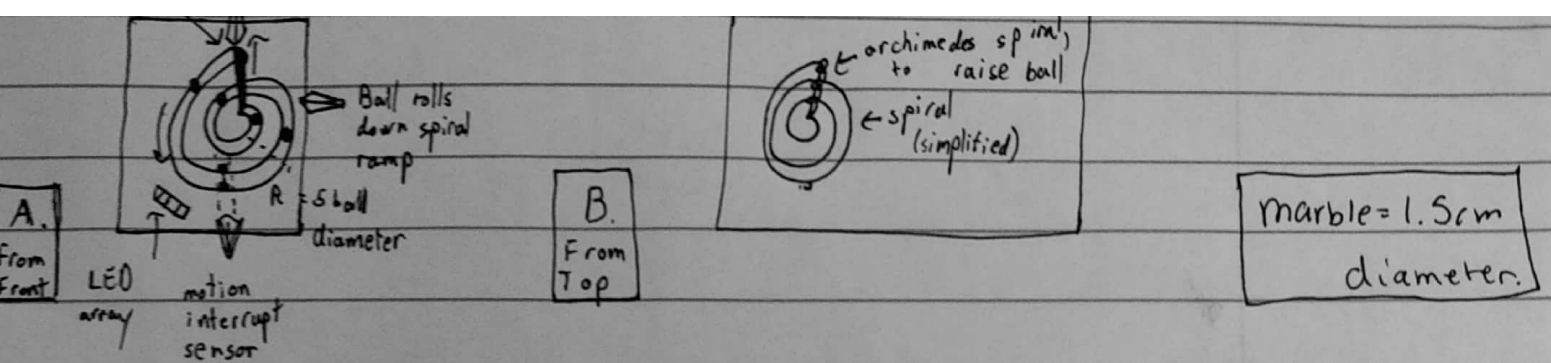 Ball rolls
down spiral
ramp
R = 5 ball
diameter
A.
From
Front
LED
array
motion
interrupt
sensor
archimedes spiral,
to raise ball
spiral
(simplified)
B.
From
Top
marble = 1.5cm
diameter.